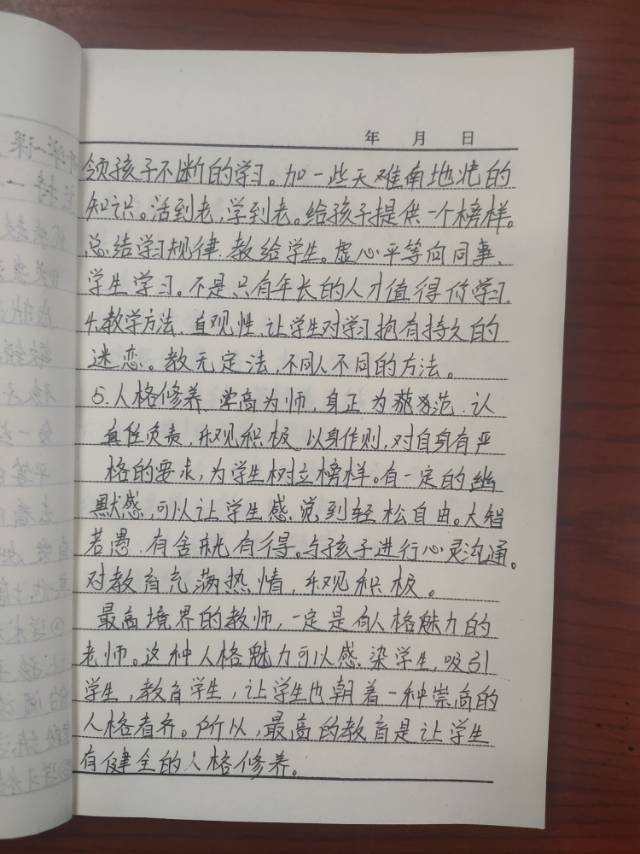 年 月 日
领孩子不断的学习。加一些天难南地北的
知识。活到老,学到老。给孩子提供一个榜样。
总结学习规律.教给学生。虚心平等向同事、
学生学习。不是只有年长的人才值得你学习.
4.教学方法、直观性.让学生对学习抱有持久的
迷恋。教无定法,不同人不同的方法。
5.人格修养.学高为师,身正为范.认
真任负责,乐观积极.以身作则,对自身有严
格的要求,为学生树立榜样。有一定的幽
默感,可以让学生感觉到轻松自由。大智
若愚.有舍就有得。与孩子进行心灵沟通。
对教育充满热情,乐观积极。
最高境界的教师,一定是有人格魅力的
老师。这种人格魅力可以感染学生,吸引
学生,教育学生,让学生也朝着一种崇高的
人格看齐。所以,最高的教育是让学生
有健全的人格修养。